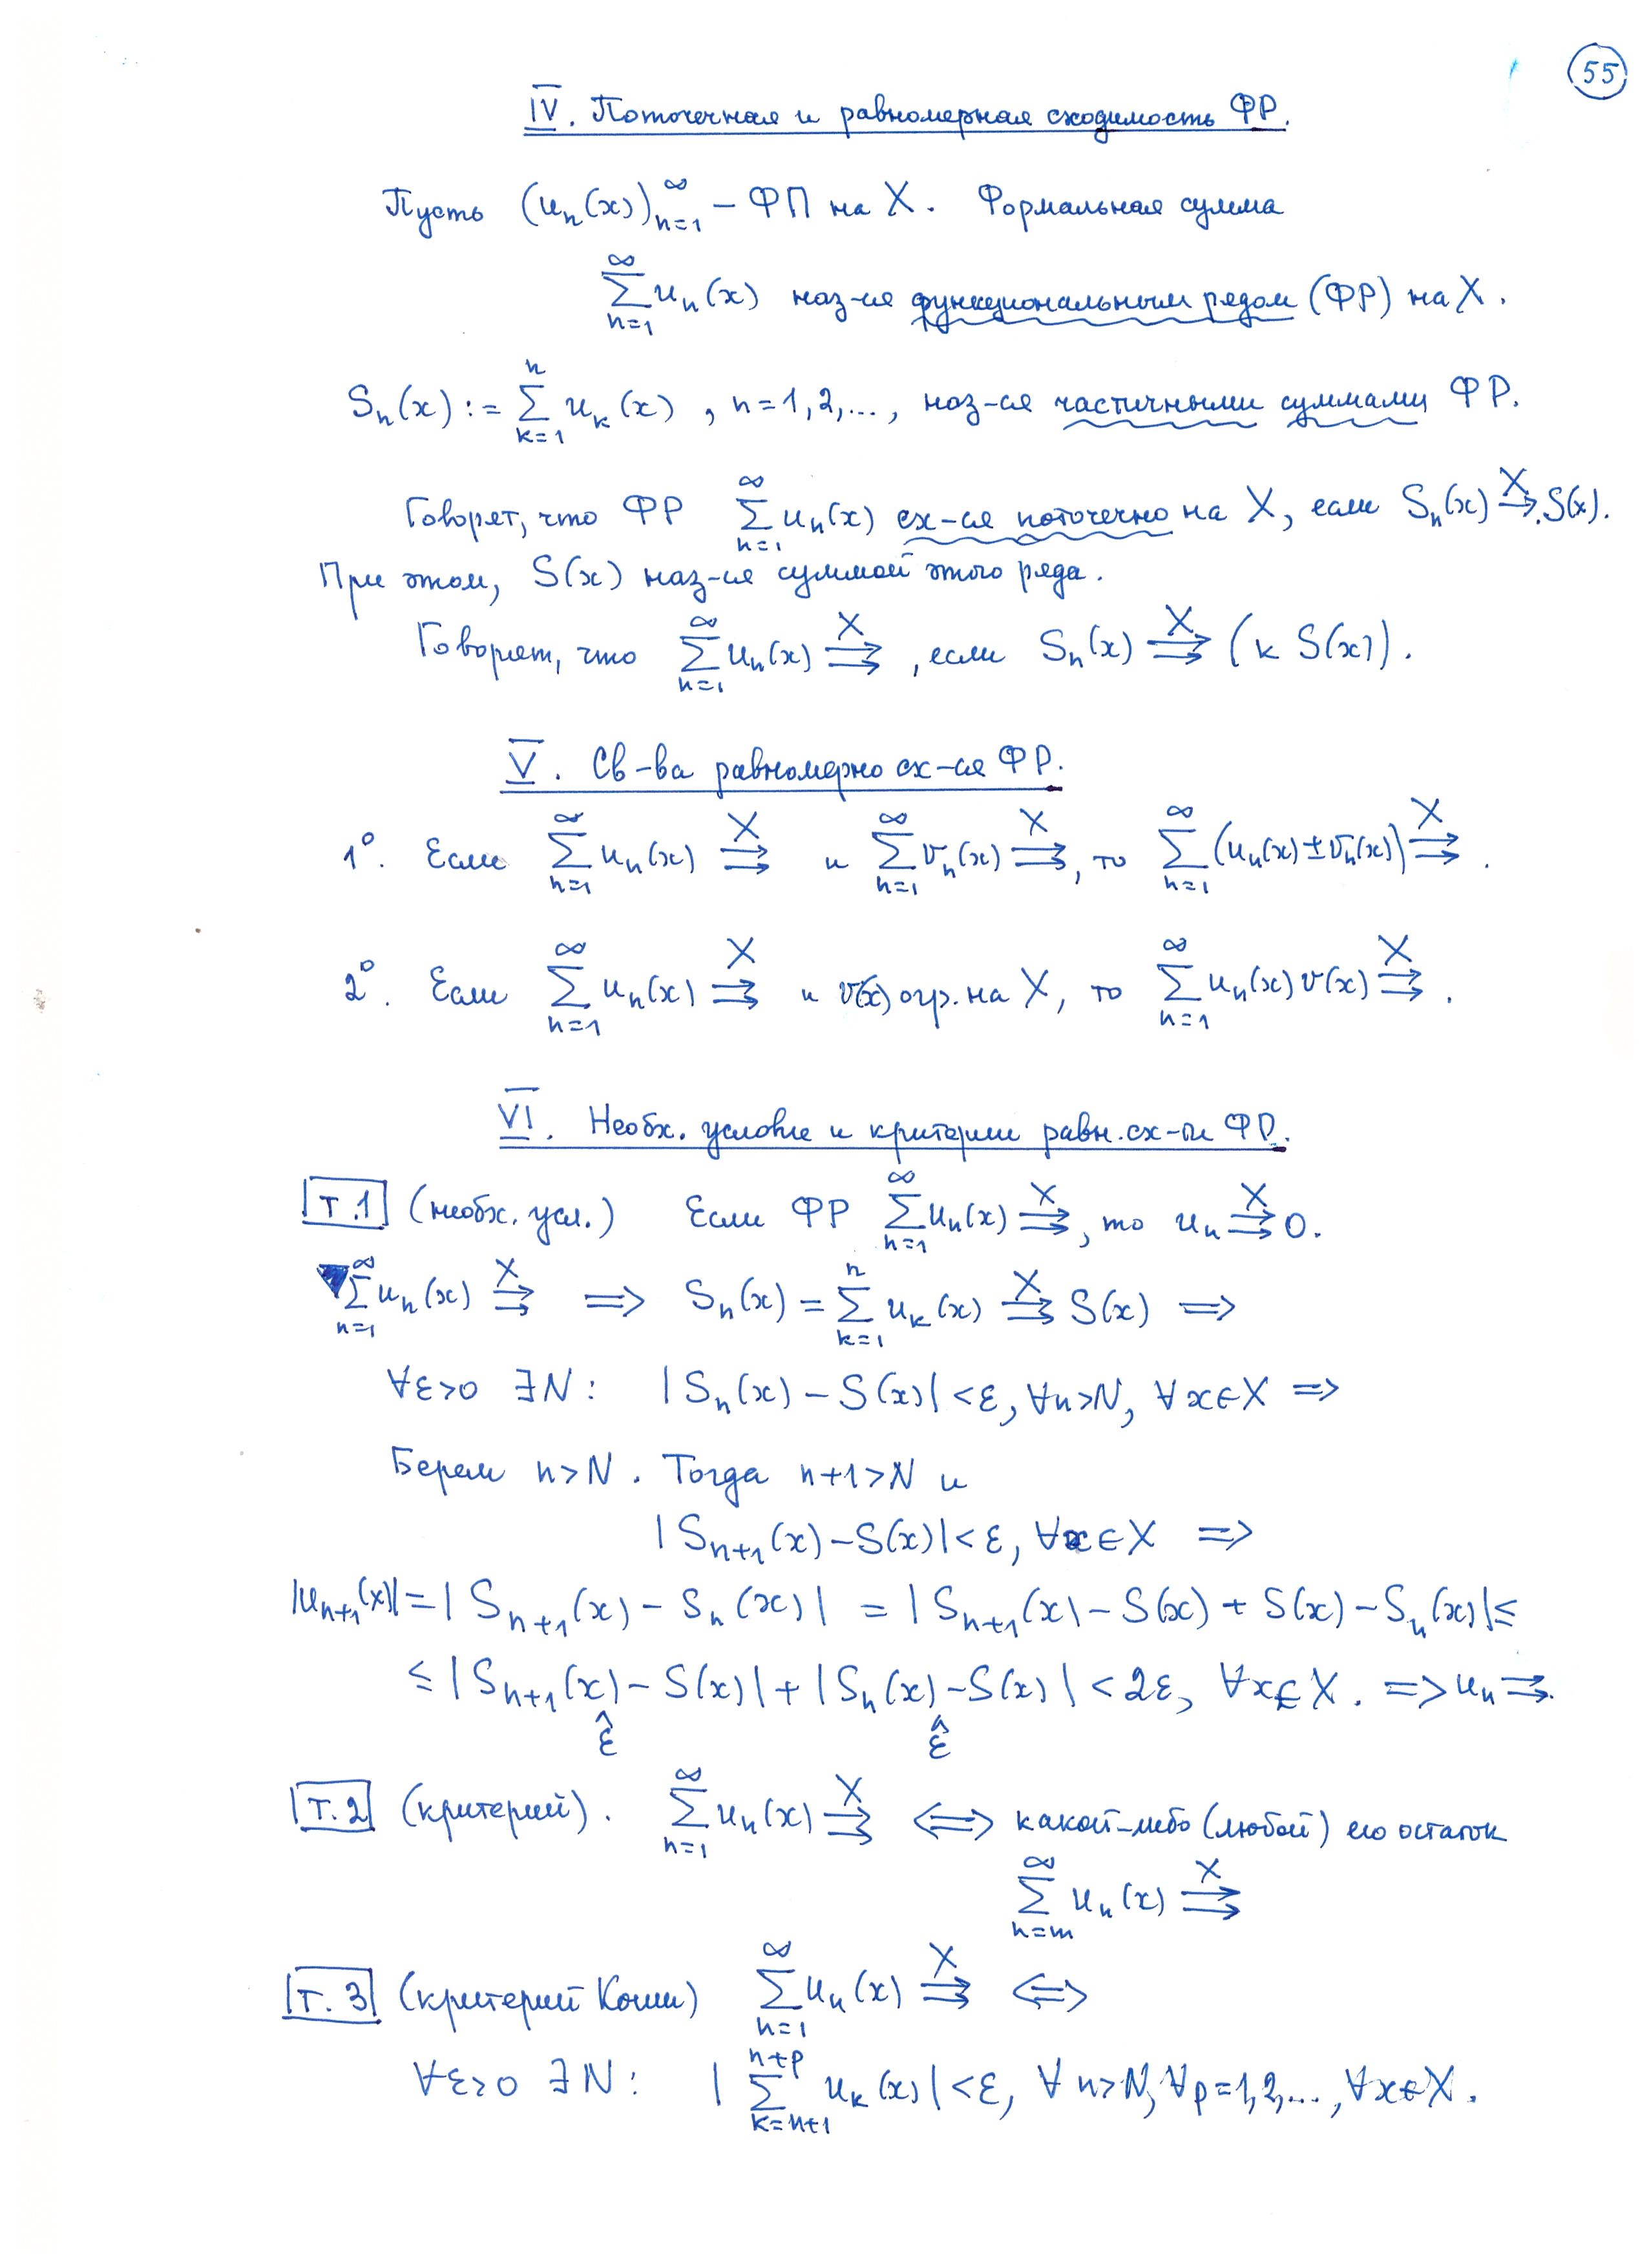 55
IV. Поточечная и равномерная сходимость ФР.
Пусть (uₙ(x))ₙ₌₁^∞ – ФП на X. Формальная сумма
∑ₙ₌₁^∞ uₙ(x) наз-ся функциональным рядом (ФР) на X.
Sₙ(x) := ∑ₖ₌₁^n uₖ(x), n=1,2,..., наз-ся частичными суммами ФР.
Говорят, что ФР ∑ₙ₌₁^∞ uₙ(x) сх-ся поточечно на X, если Sₙ(x) →^X S(x).
При этом, S(x) наз-ся суммой этого ряда.
Говорят, что ∑ₙ₌₁^∞ uₙ(x) ⇉^X, если Sₙ(x) ⇉^X (к S(x)).
V. Св-ва равномерно сх-ся ФР.
1°. Если ∑ₙ₌₁^∞ uₙ(x) ⇉^X и ∑ₙ₌₁^∞ vₙ(x) ⇉^X, то ∑ₙ₌₁^∞ (uₙ(x) ± vₙ(x)) ⇉^X.
2°. Если ∑ₙ₌₁^∞ uₙ(x) ⇉^X и v(x) огр. на X, то ∑ₙ₌₁^∞ uₙ(x) v(x) ⇉^X.
VI. Необх. условие и критерии равн. сх-ти ФР.
Т.1 (необх. усл.) Если ФР ∑ₙ₌₁^∞ uₙ(x) ⇉^X, то uₙ ⇉^X 0.
▼ ∑ₙ₌₁^∞ uₙ(x) ⇉^X ⟹ Sₙ(x) = ∑ₖ₌₁^n uₖ(x) ⇉^X S(x) ⟹
∀ε>0 ∃N: |Sₙ(x) – S(x)| < ε, ∀n>N, ∀x∈X ⟹
Берем n>N. Тогда n+1>N и
|Sₙ₊₁(x) – S(x)| < ε, ∀x∈X ⟹
|uₙ₊₁(x)| = |Sₙ₊₁(x) – Sₙ(x)| = |Sₙ₊₁(x) – S(x) + S(x) – Sₙ(x)| ≤
≤ |Sₙ₊₁(x) – S(x)| + |Sₙ(x) – S(x)| < 2ε, ∀x∈X. ⟹ uₙ ⇉.
^ε ^ε
Т.2 (критерий). ∑ₙ₌₁^∞ uₙ(x) ⇉^X ⟺ какой-либо (любой) его остаток
∑ₙ₌ₘ^∞ uₙ(x) ⇉^X
Т.3 (критерий Коши) ∑ₙ₌₁^∞ uₙ(x) ⇉^X ⟺
∀ε>0 ∃N: |∑ₖ₌ₙ₊₁^{n+p} uₖ(x)| < ε, ∀n>N, ∀p=1,2,..., ∀x∈X.